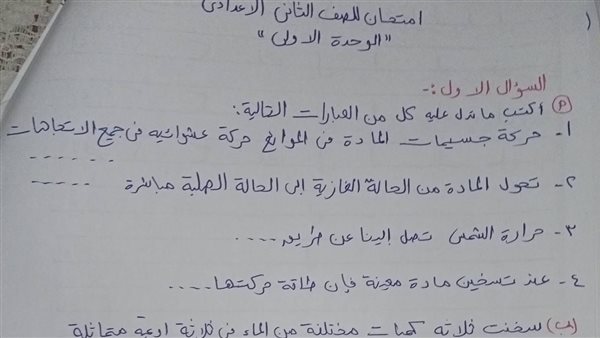 امتحان للصف الثانى الاعدادى
"الوحدة الاولى"
السؤال الاول :-
(P) اكتب ما تدل عليه كل من العبارات التالية :
١- حركة جسيمات المادة فى الموائع حركة عشوائيه فى جميع الاتجاهات
......
٢- تحول المادة من الحالة الغازية الى الحالة الصلبة مباشرة .....
٣- حرارة الشمس تصل إلينا عن طريق ....
٤- عند تسخين مادة معينة فإن طاقة حركتها ....
(ب) سخنت ثلاثه كميات مختلفة من الماء فى ثلاثة اوعية متماثلة